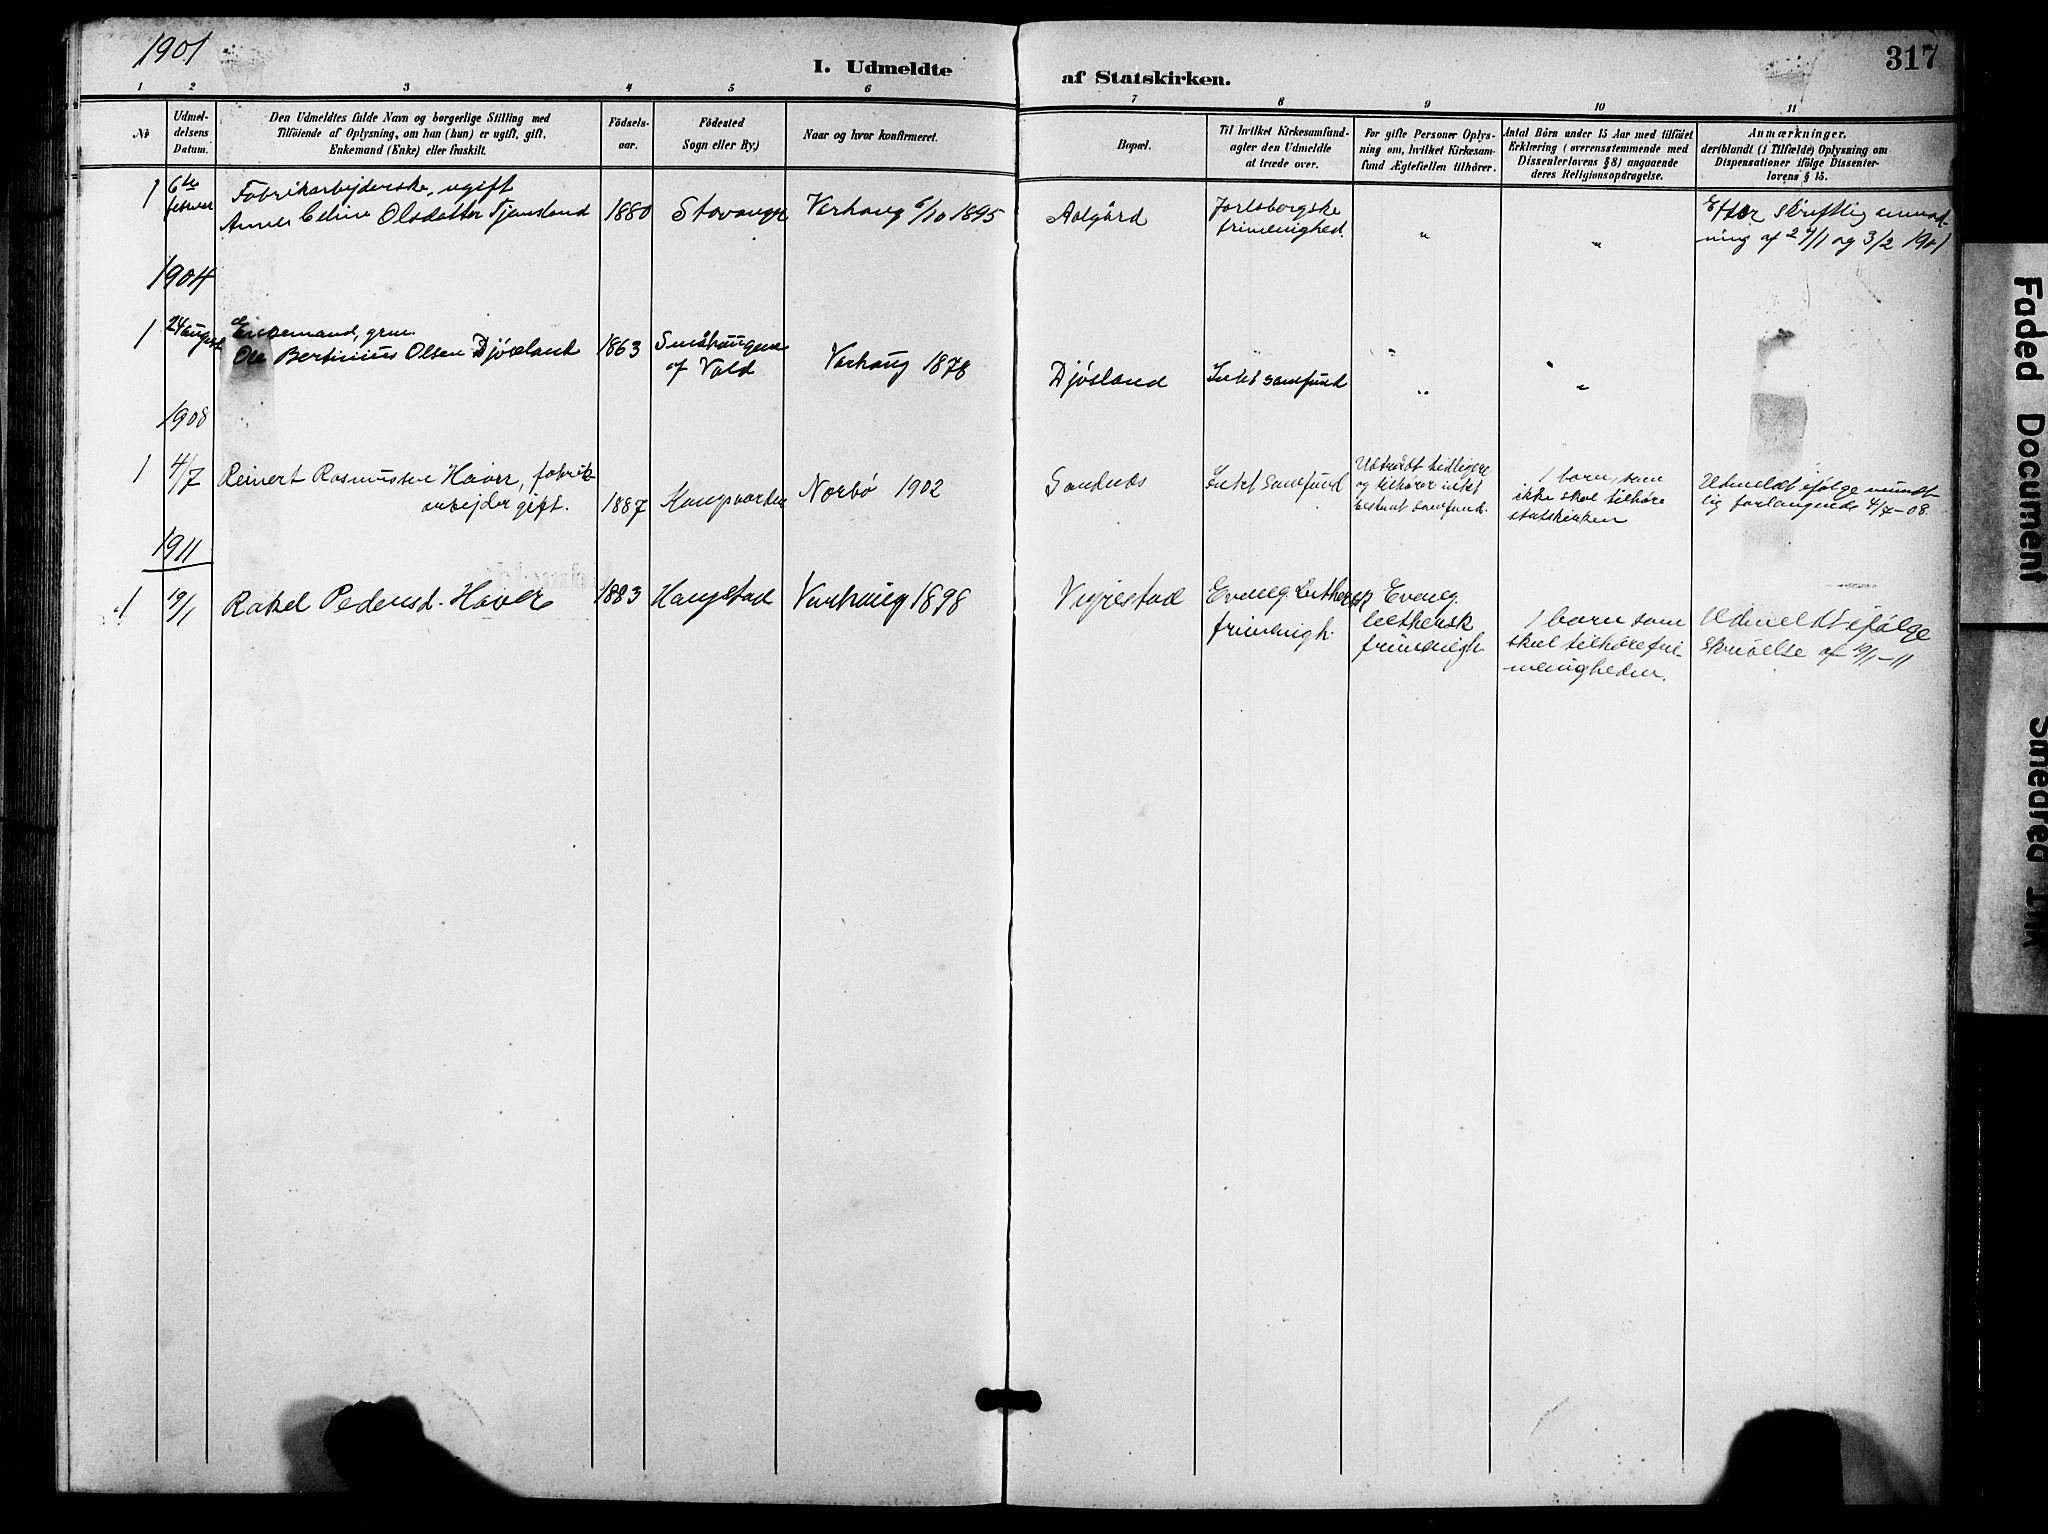 1901
317
I. Udmeldte
af Statskirken.
1 2 3 4 5 6 7 8 9 10 11
No
Udmel-
delsens
Datum.
Den Udmeldtes fulde Navn og borgerlige Stilling med
Tilföiende af Oplysning, om han (hun) er ugift, gift,
Enkemand (Enke) eller fraskilt.
Fødsels-
aar.
Födested
Sogn eller By.)
Naar og hvor konfirmeret.
Bopæl.
Til hvilket Kirkesamfund-
agter den Udmeldte
at træde over.
For gifte Personer Oplys-
ning om, hvilket Kirkesam-
fund Ægtefællen tilhörer.
Antal Börn under 15 Aar med tilföiet
Erklæring (overensstemmende med
Dissenterlovens § 8) angaaende
deres Religionsopdragelse.
Anmærkninger,
deriblandt (i Tilfælde) Oplysning om
Dispensationer ifölge Dissenter-
lovens § 15.
1
6te
februar
Fabrikarbejderske, ugift
Celine Olsdatter Tjemsland
1880
Stavanger
Varhaug 6/10 1895
Aalgård
Jarlsbergske
frimenighed.
"
"
Efter skriftlig anmod-
ning af 24/1 og 3/2 1901
1904
1
24 august
Enkemand, grm.
Ole Bertinius Olsen Djösland
1863
Småhaugene
af Vold
Varhaug 1878
Djösland
Intet samfund
"
"
1908
1
4/7
Reinert Rasmussen Haver, fabrik-
arbejder gift.
1887
Norbö 1902
Sandnæs
Intet samfund
Udtrådt tidligere
og tilhører intet
bestemt samfund.
1 barn, som
ikke skal tilhøre
statskirken
Udmeldt ifølge mundt-
lig forlangende 4/7-08.
1911
1
19/1
Rakel Pedersd. Haver
1883
Haugstad
Varhaug 1898
Vigrestad
Evang. Luthersk
frimenigh.
Evang.
luthersk
frimenigh.
1 barn som
skal tilhøre fri-
menigheden.
Udmeldt ifølge
skrivelse af 19/1-11
Faded Document
Smeared Ink